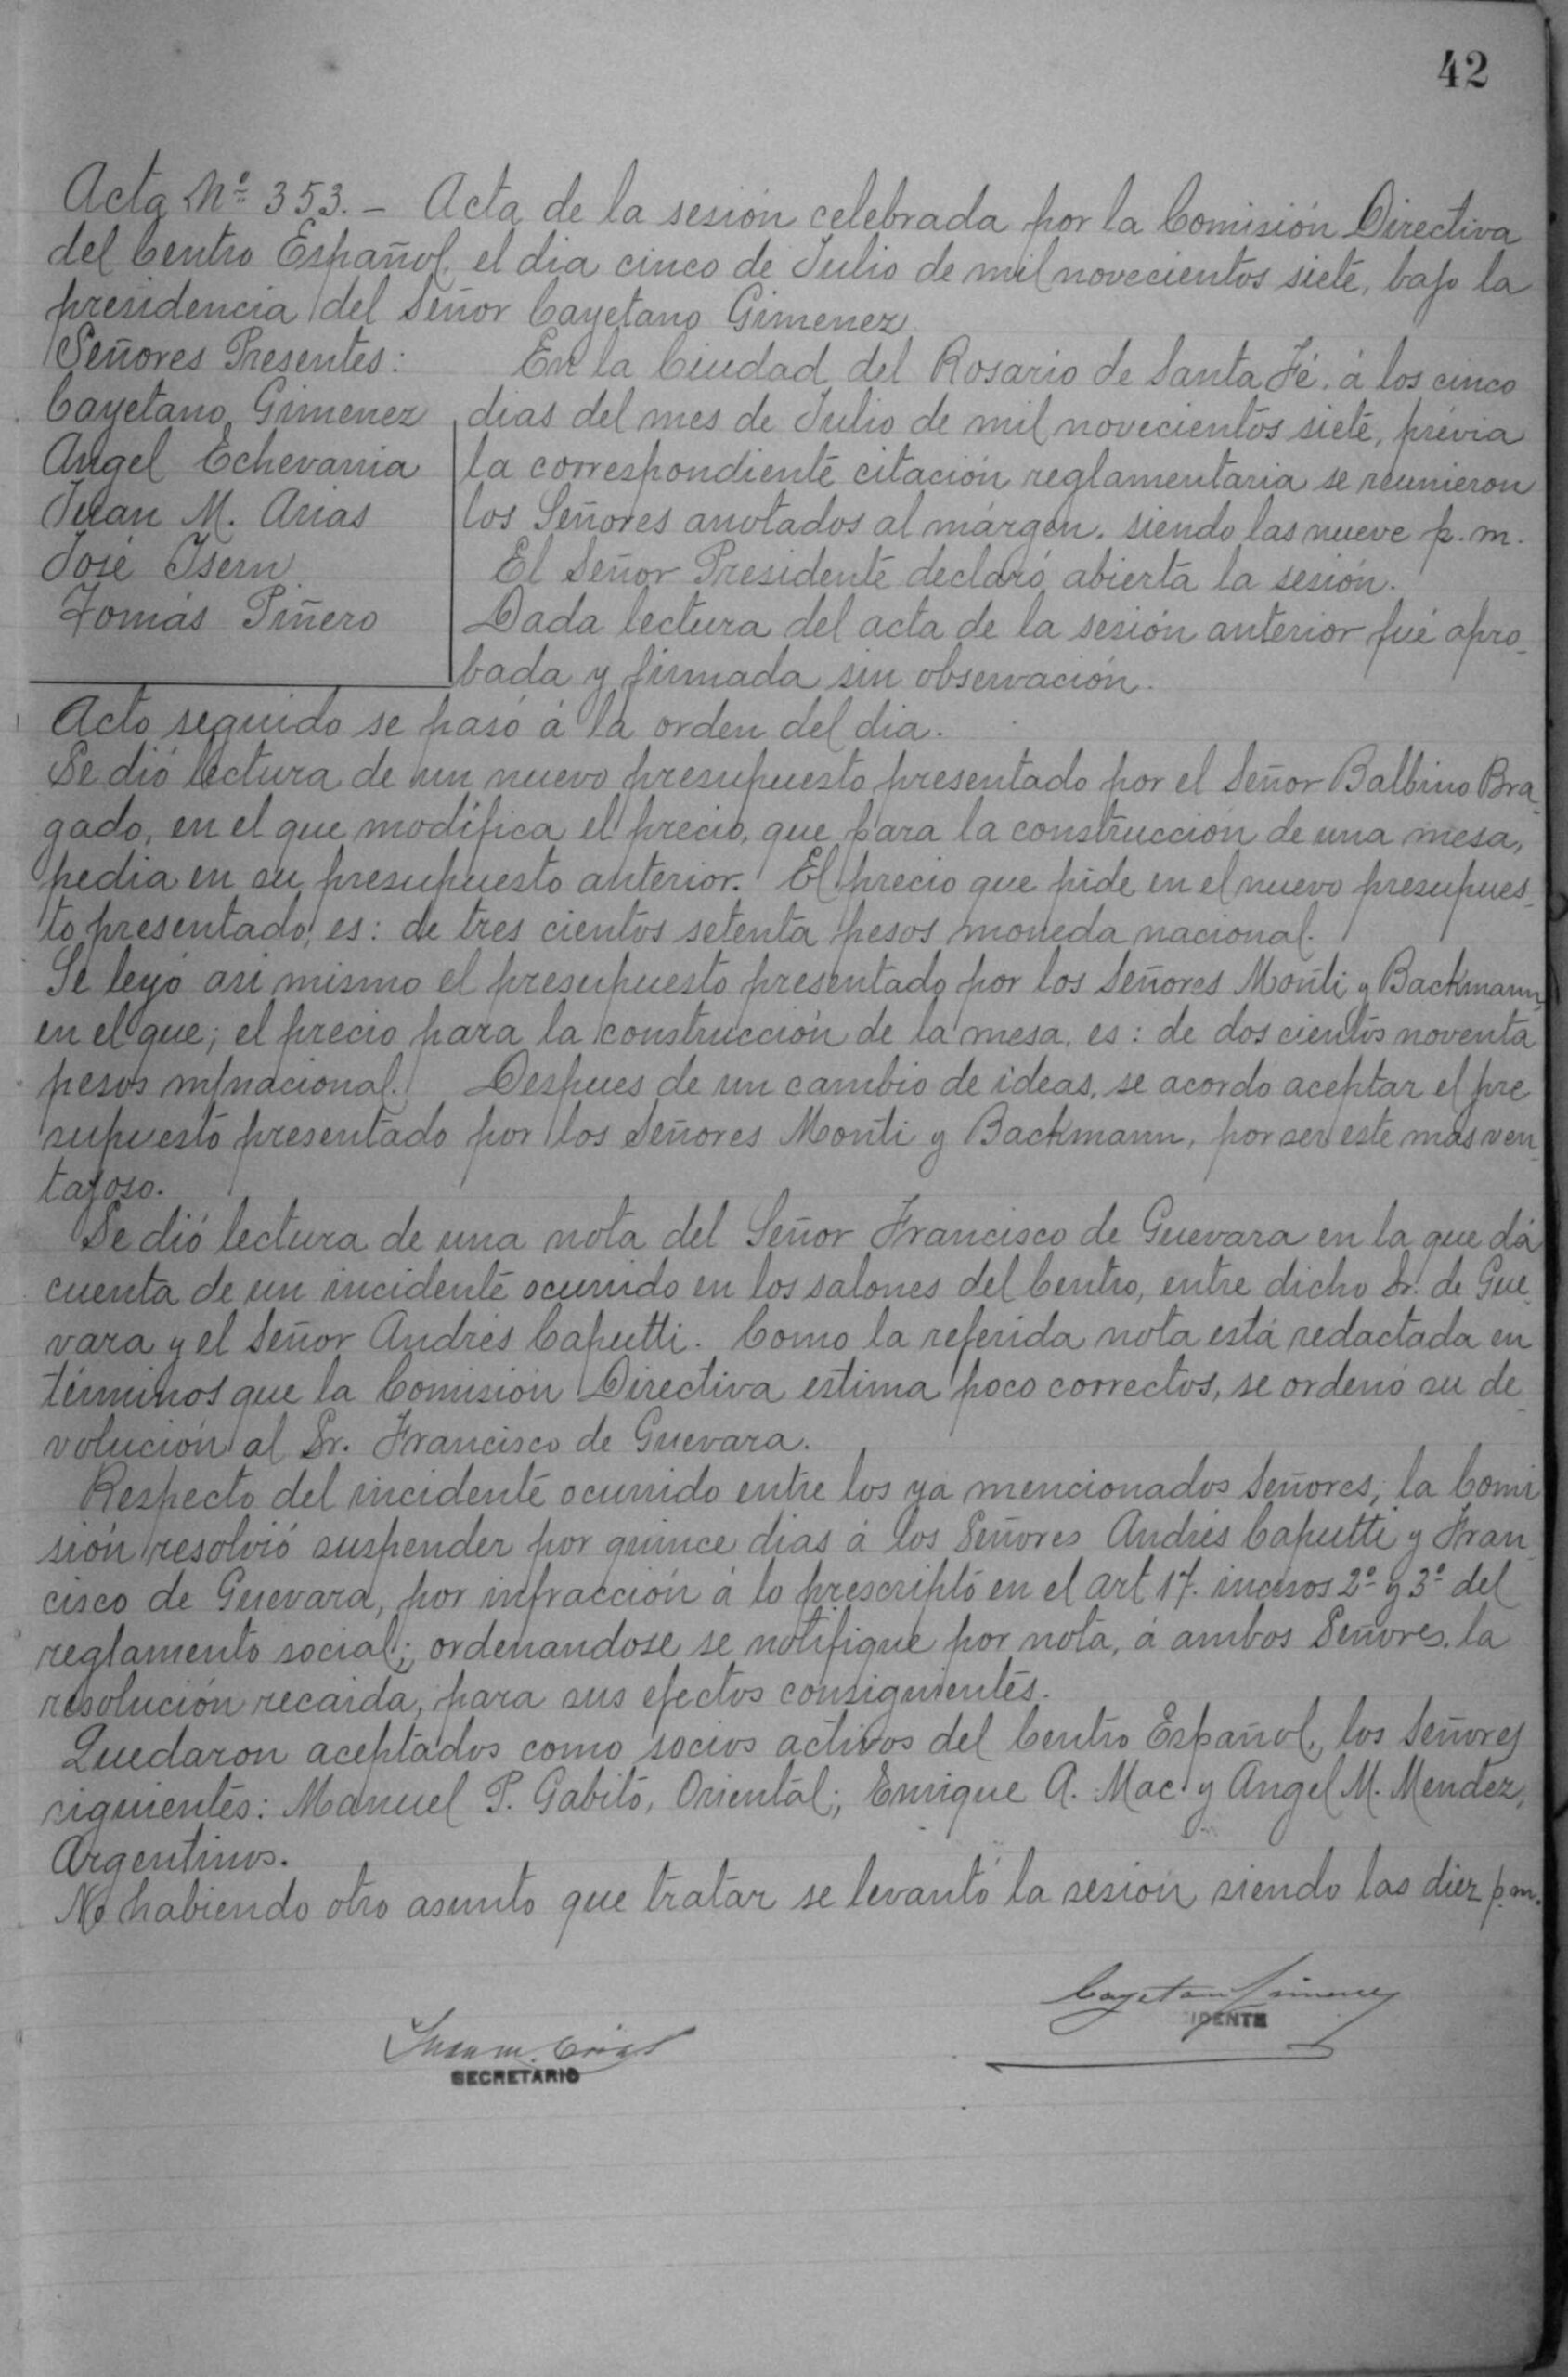 42
Acta Nº 353. - Acta de la sesión celebrada por la Comisión Directiva
del Centro Español, el dia cinco de Julio de mil novecientos siete, bajo la
presidencia del Señor Cayetano Gimenez.
Señores Presentes:
Cayetano Gimenez
Angel Echevarria
Juan M. Arias
José Isern
Tomás Piñero
En la Ciudad del Rosario de Santa Fé, á los cinco
dias del mes de Julio de mil novecientos siete, prévia
la correspondiente citación reglamentaria se reunieron
los Señores anotados al márgen, siendo las nueve p.m.
El Señor Presidente declaró abierta la sesión.
Dada lectura del acta de la sesión anterior fué apro-
bada y firmada sin observación.
Acto seguido se pasó á la orden del dia.
Se dió lectura de un nuevo presupuesto presentado por el Señor Balbino Bra-
gado, en el que modifica el precio, que para la construcción de una mesa,
pedia en su presupuesto anterior. El precio que pide en el nuevo presupues-
to presentado, es: de tres cientos setenta pesos moneda nacional.
Se leyó asi mismo el presupuesto presentado por los Señores Monti y Backmann,
en el que; el precio para la construcción de la mesa, es: de dos cientos noventa
pesos m/nacional. Despues de un cambio de ideas, se acordo aceptar el pre
supuesto presentado por los Señores Monti y Backmann, por ser este mas ven-
tajoso.
Se dió lectura de una nota del Señor Francisco de Guevara en la que dá
cuenta de un incidente ocurrido en los salones del Centro, entre dicho Sr. de Gue-
vara y el Señor Andrés Caputti. Como la referida nota está redactada en
términos que la Comisión Directiva estima poco correctos, se ordenó su de-
volución al Sr. Francisco de Guevara.
Respecto del incidente ocurrido entre los ya mencionados Señores, la Comi
sión resolvió suspender por quince dias á los Señores Andrés Caputti y Fran-
cisco de Guevara, por infracción á lo prescripto en el art 17. incisos 2º y 3º del
reglamento social; ordenandose se notifique por nota, á ambos Señores, la
resolución recaida, para sus efectos consiguientes.
Quedaron aceptados como socios activos del Centro Español, los Señores
siguientes: Manuel P. Gabito, Oriental; Enrique A. Mac y Angel M. Mendez,
Argentinos.
No habiendo otro asunto que tratar se levantó la sesión siendo las diez p.m.
Cayetano Gimenez
IDENTE
Juan M. Arias
SECRETARIO